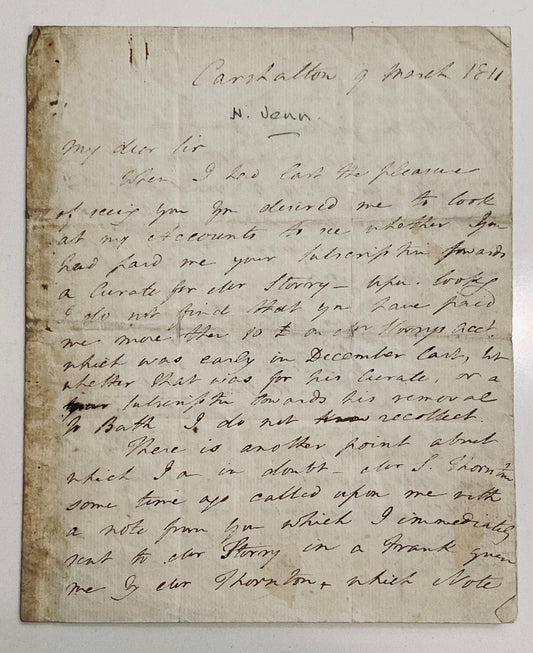 Carshalton 9 March 1811
H. Venn.
My dear Sir
When I had last the pleasure
of seeig you you desired me to look
at my Accounts to see whether you
had paid me your subscription towards
a Curate for Mr Storry — upon lookg
I do not find that you have paid
me more than 10 £ on Mr Storrys acct.
which was early in December last, but
whether that was for his Curate, or a
subscriptin towards his removal
to Bath I do not recollect.
There is another point about
which I a in doubt — Mr S. Thornton
some time ago called upon me with
a note from you which I immediately
sent to Mr Storry in a Frank given
me by Mr Thornton, which Note